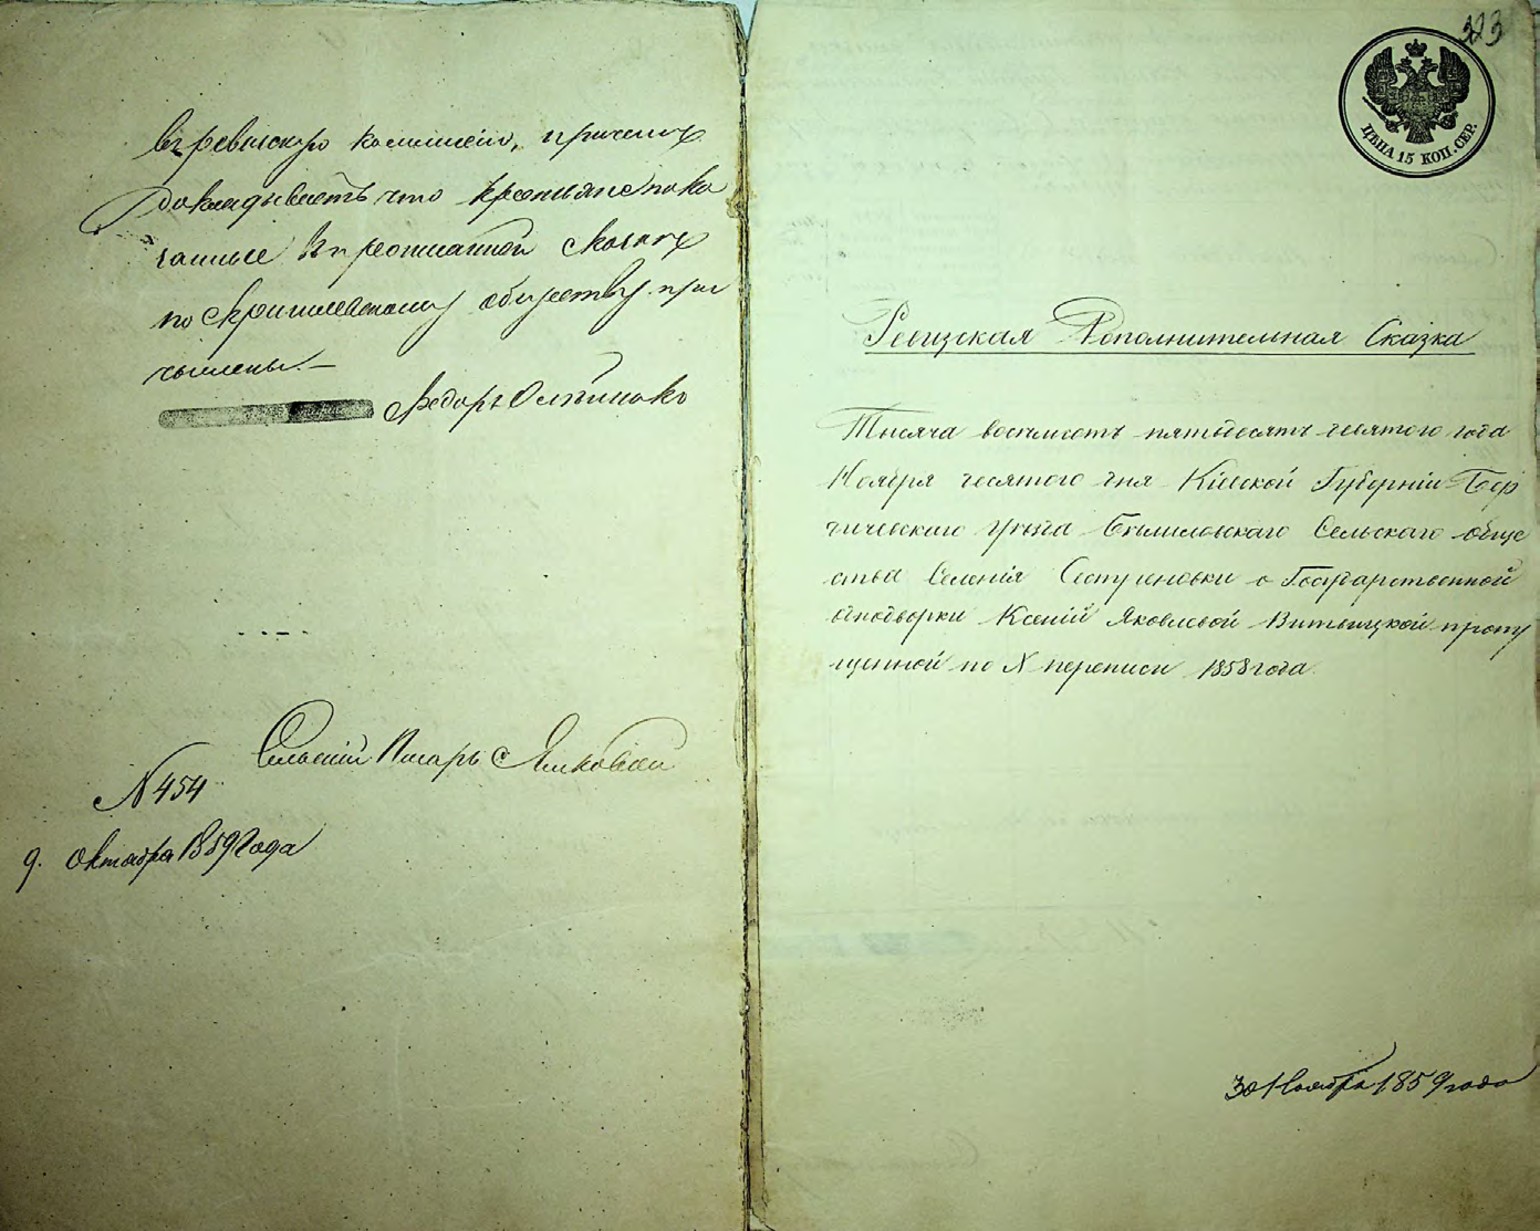 въ ревизскую Комиссію, причемъ
докладываетъ что крестьяне пока
занные въ прописанной сказкѣ
по обществу при
числены. —
Федоръ
Сельскій Писарь
N 454
9. Октября 1859 Года
223
ЦѢНА 15 КОП. СЕР.
Ревизская Дополнительная Сказка
Тысяча восемьсотъ пятьдесятъ девятого года
Ноября десятого дня Кіевской Губерніи Бер
дичевскаго уѣзда Сельскаго обще
ства Селенія Сестреновки о Государственной
однодворки Ксеніи Яковлевой Витвицкой пропу
щенной по X переписи 1858 года.
30 Ноября 1859 года